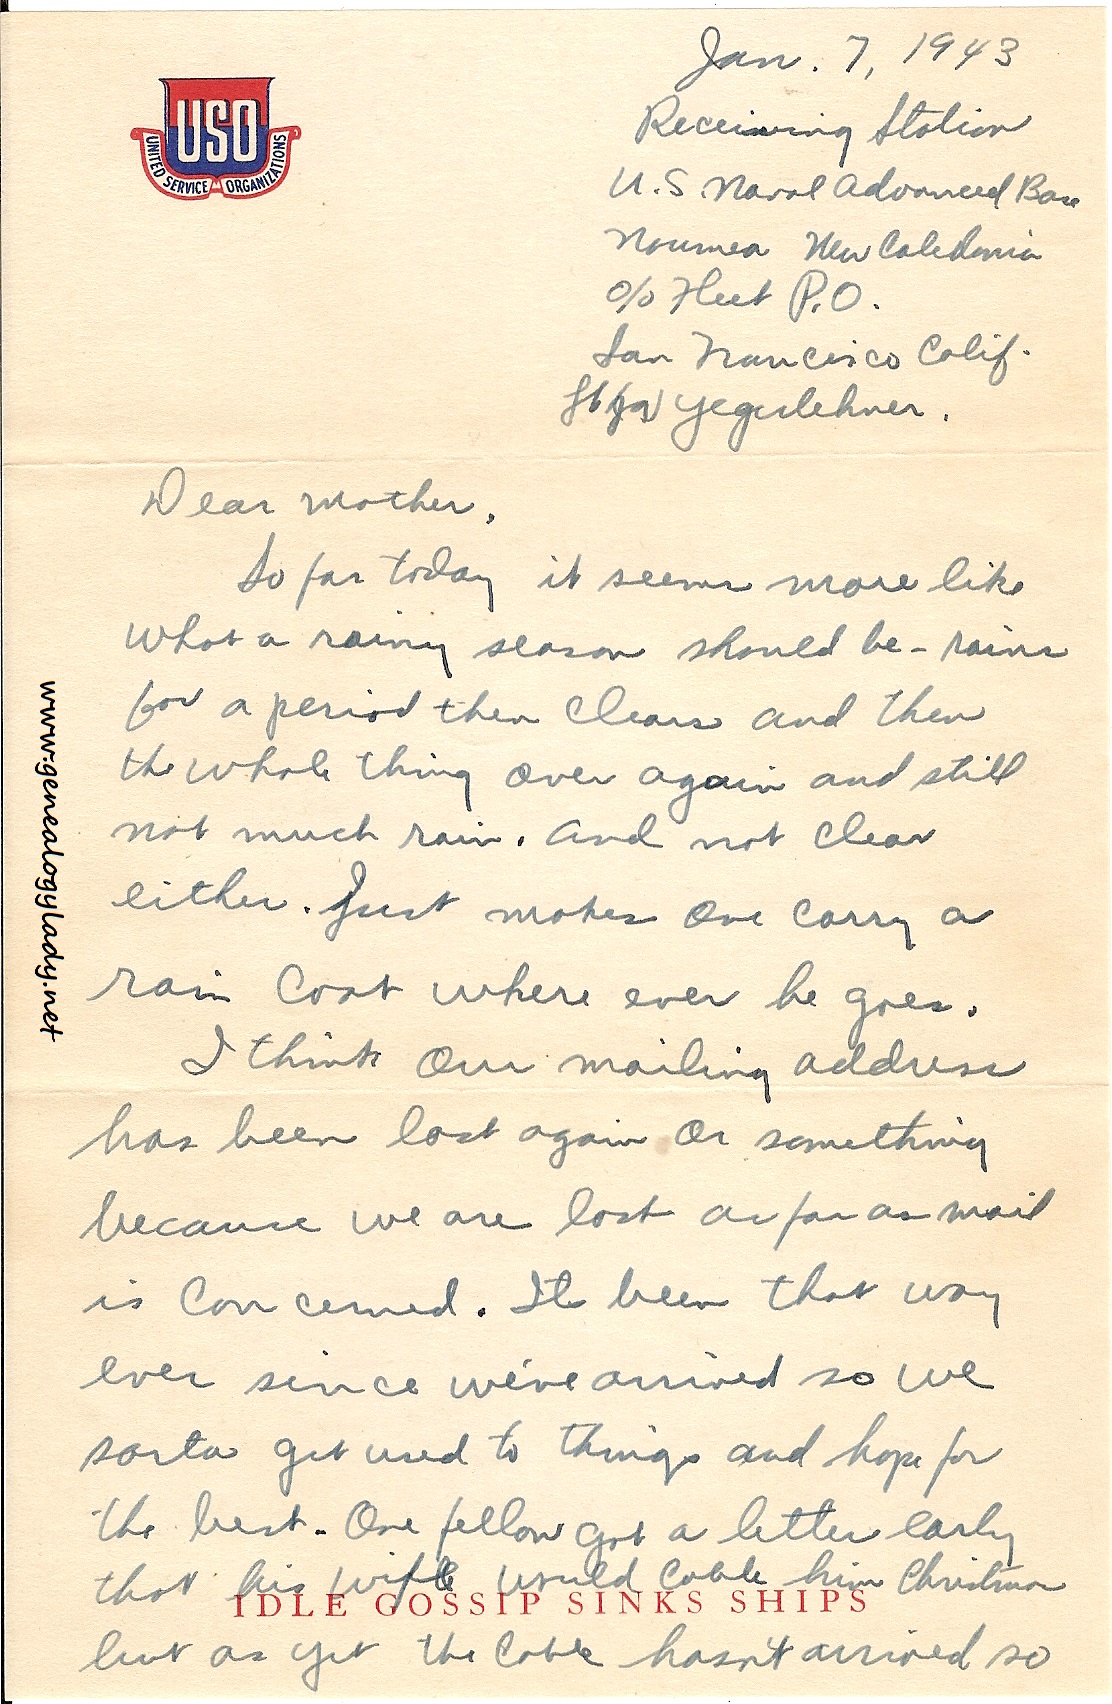 Jan. 7, 1943
Receiving Station
U.S Naval Advanced Base
Noumea New Caledonia
c/o Fleet P.O.
San Francisco Calif.
Lt (jg) Yegerlehner.
USO
UNITED SERVICE ORGANIZATIONS
Dear Mother,
So far today it seems more like
what a rainy season should be - rains
for a period then clears and then
the whole thing over again and still
not much rain. And not clear
either. Just makes one carry a
rain coat where ever he goes.
I think our mailing address
has been lost again or something
because we are lost as far as mail
is concerned. Its been that way
ever since we've arrived so we
sorta get used to things and hope for
the best. One fellow got a letter early
that his wife would cable him Christmas
IDLE GOSSIP SINKS SHIPS
but as yet the cable hasn't arrived so
www.genealogylady.net